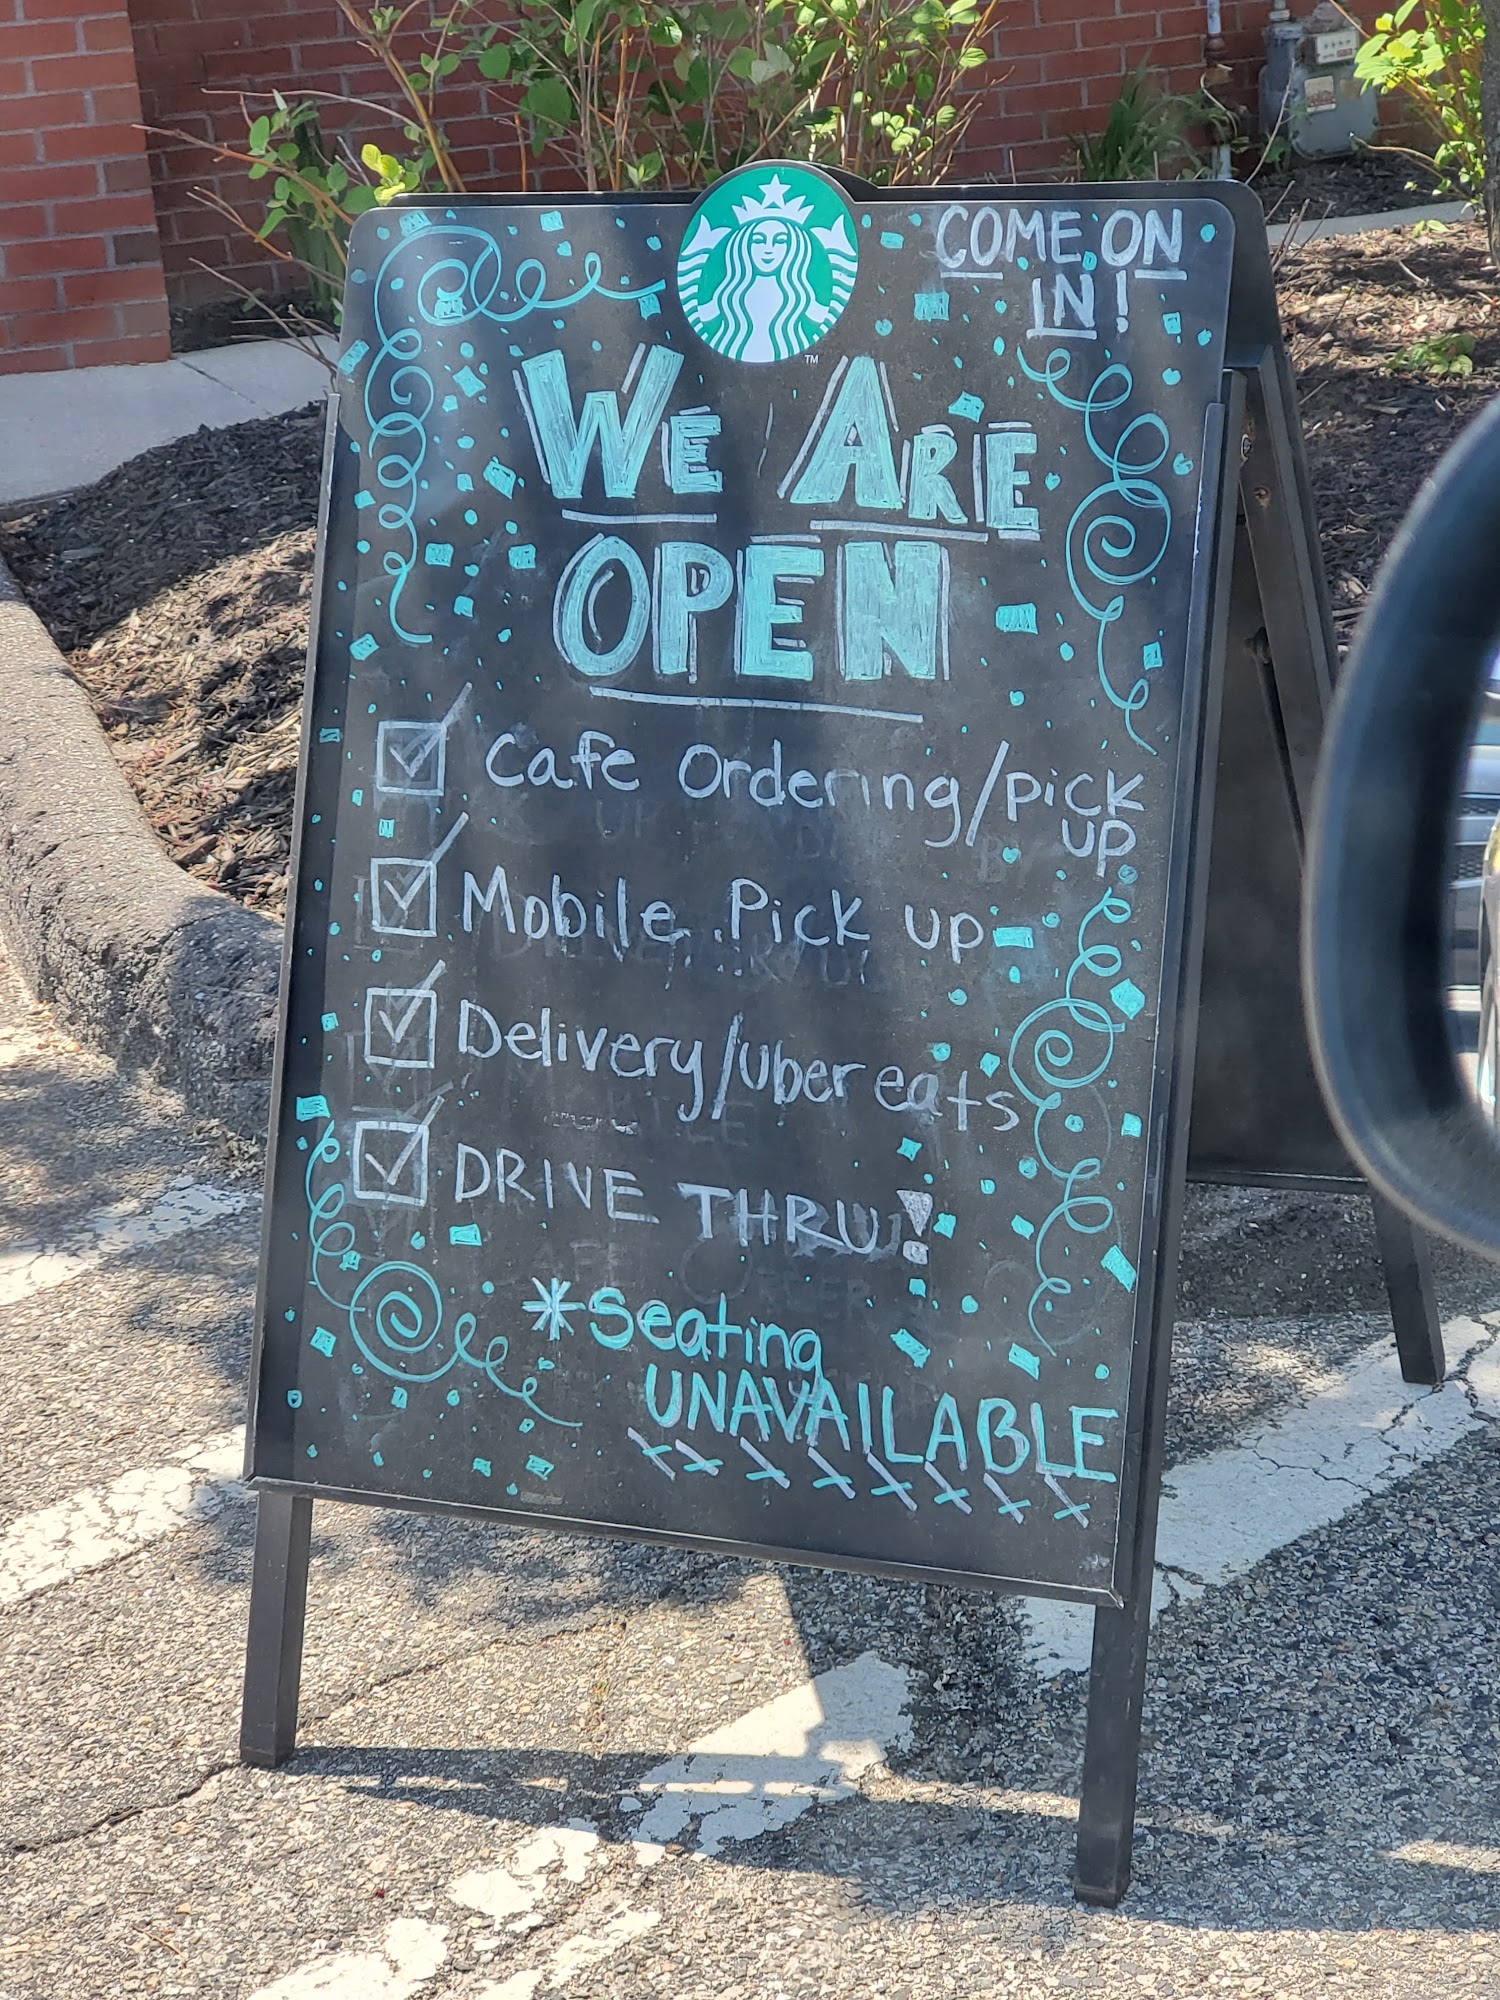 COME ON
IN!
™
WE ARE
OPEN
Cafe Ordering/Pick
up
Mobile Pick up
Delivery/Uber eats
DRIVE THRU!
*Seating
UNAVAILABLE